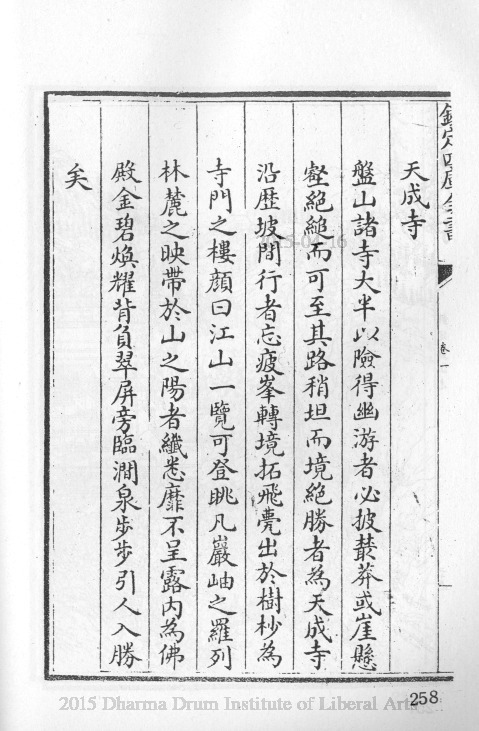 欽定四庫全書
卷一
天成寺
盤山諸寺大半以險得幽游者必披叢莽或崖懸
壑絕縋而可至其路稍坦而境絕勝者為天成寺
沿歷坡間行者忘疲峯轉境拓飛甍出於樹杪為
寺門之樓顏曰江山一覽可登眺凡巖岫之羅列
林麓之映帶於山之陽者纖悉靡不呈露内為佛
殿金碧煥耀背負翠屏旁臨澗泉步步引人入勝
矣
2015 Dharma Drum Institute of Liberal Arts
258